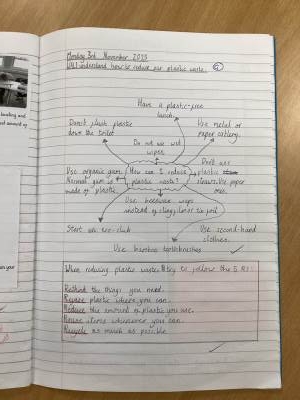 Monday 3rd November 2025
understand how to reduce our plastic waste.
Have a plastic-free
lunch.
Don't flush plastic
down the toilet
Use metal or
paper cutlery.
Do not use wet
wipes.
Don't use
plastic
straws. Use paper
ones.
Use organic gum.
Normal gum is
made of plastic.
How can I reduce
plastic waste?
Use beeswax wraps
instead of clingfilm or tin foil
Start an eco-club
Use second-hand
clothes.
Use bamboo toothbrushes
When reducing plastic waste, try to follow the 5 Rs:
Rethink the things you need.
Refuse plastic where you can.
Reduce the amount of plastic you use.
Reuse items whenever you can.
Recycle as much as possible.